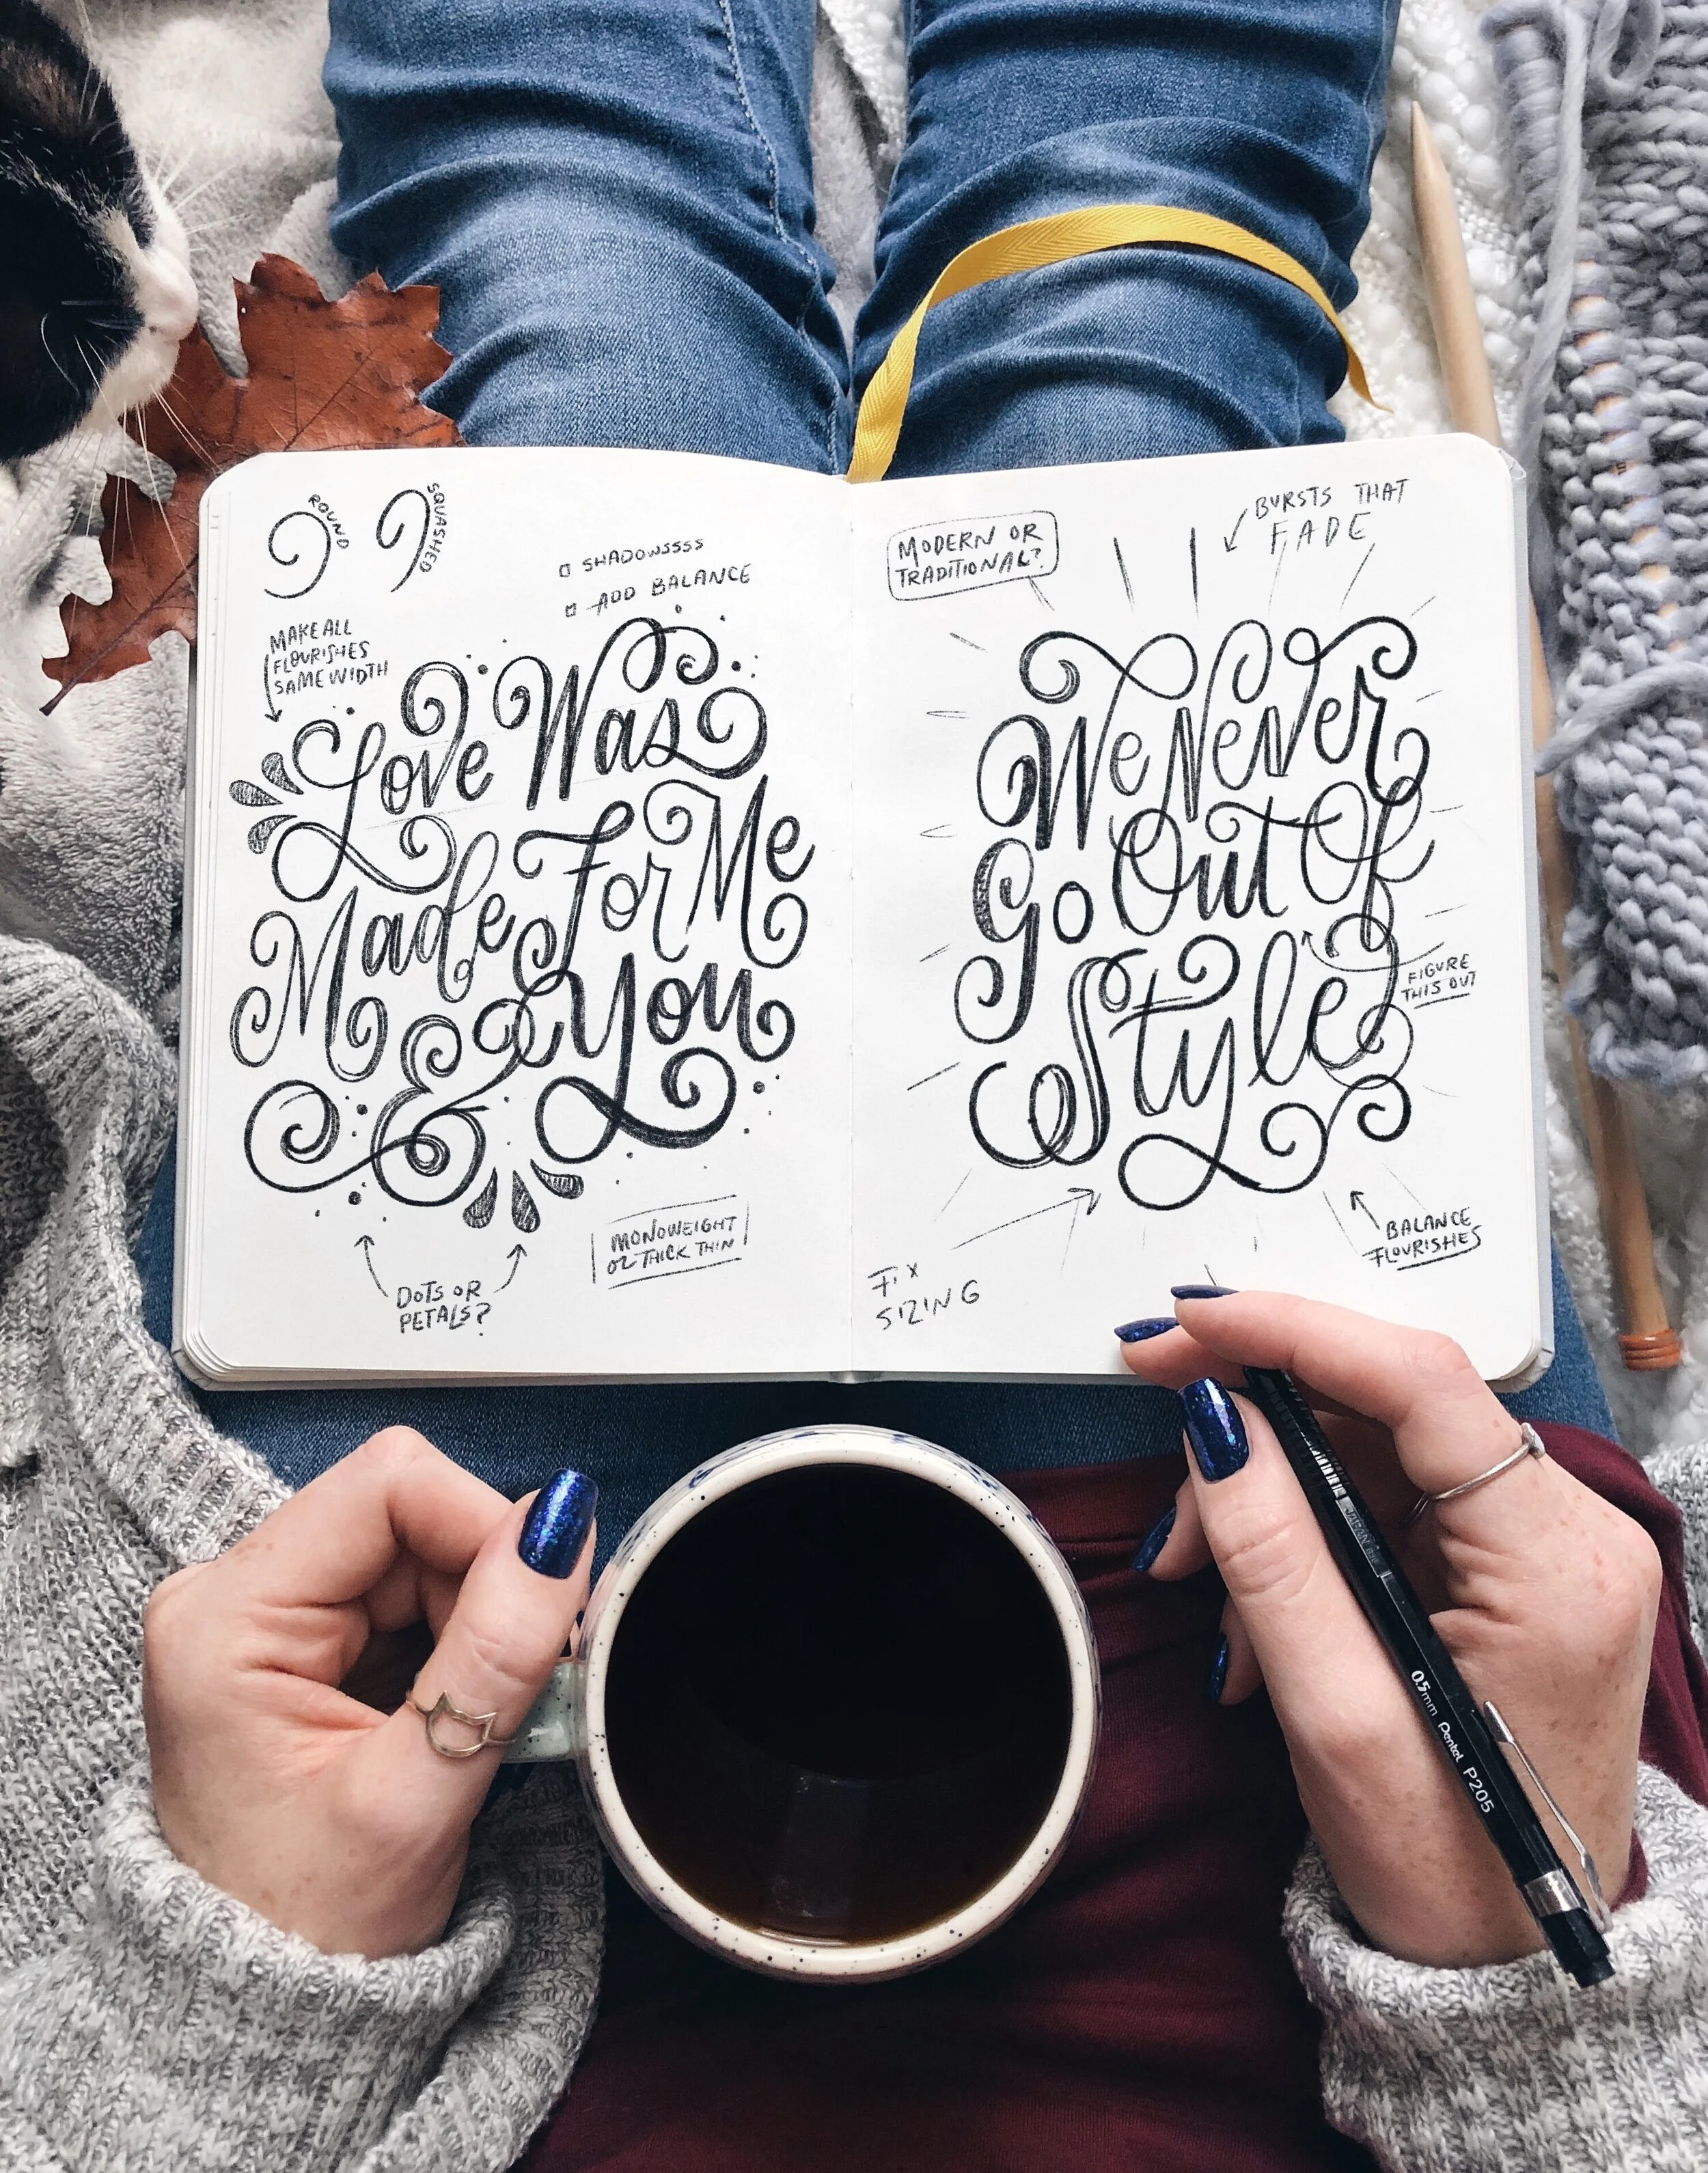 ROUND
SQUASHED
□ SHADOWSSSS
□ ADD BALANCE
MAKE ALL
FLOURISHES
SAME WIDTH
Love Was
Made For Me
& You
DOTS OR
PETALS?
MONOWEIGHT
OR THICK THIN
MODERN OR
TRADITIONAL?
BURSTS THAT
FADE
We Never
Go Out Of
Style
FIGURE
THIS OUT
FIX
SIZING
BALANCE
FLOURISHES
JAPAN
0.5mm Pentel P205